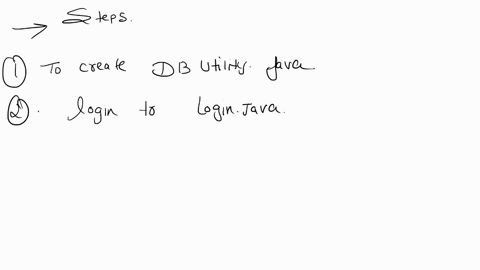 → Steps.
① To create DB Utility. Java
②. login to Login.Java.